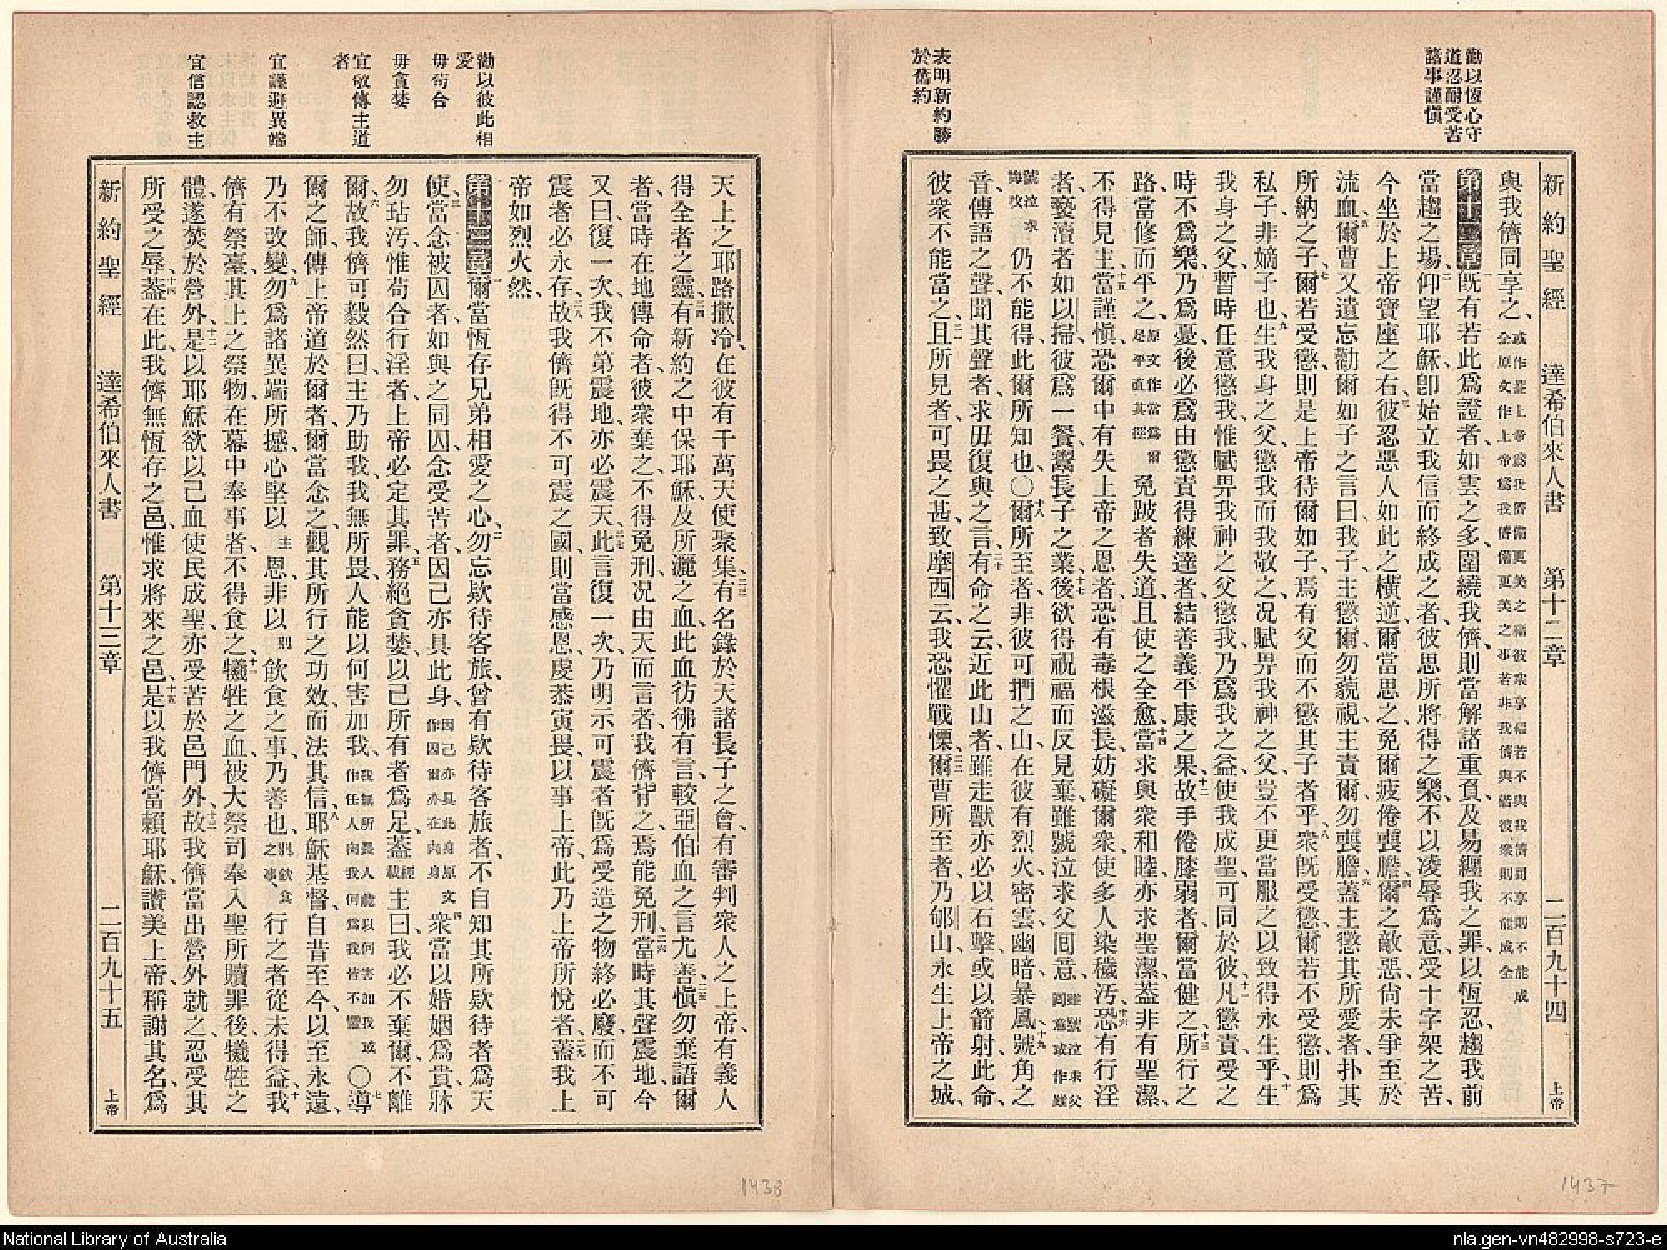 勸以恆心守
道忍耐受苦
諸事謹慎
表明新約勝
於舊約
新約聖經 達希伯來人書 第十二章 二百九十四 上帝
與我儕同享之、
第十二章既有若此爲證者、如雲之多、圍繞我儕、則當解諸重負、及易纏我之罪、以恆忍、趨我前
當趨之場、仰望耶穌、卽始立我信而終成之者、彼思所將得之樂、不以凌辱爲意、受十字架之苦、
今坐於上帝寶座之右、彼忍惡人如此之橫逆、爾當思之、免爾疲倦喪膽、爾之敵惡、尙未爭至於
流血、爾曹又遺忘勸爾如子之言曰、我子、主懲爾、勿藐視、主責爾、勿喪膽、蓋主懲其所愛者、扑其
所納之子、爾若受懲、則是上帝待爾如子、焉有父而不懲其子者乎、衆旣受懲、爾若不受懲、則爲
私子、非嫡子也、生我身之父、懲我而我敬之、況賦畀我神之父、豈不更當服之、以致得永生乎、生
我身之父、暫時任意懲我、惟賦畀我神之父懲我、乃爲我之益、使我成聖、可同於彼、凡懲責、受之
時不爲樂、乃爲憂、後必爲由懲責得練達者、結善義平康之果、故手倦膝弱者、爾當健之、所行之
路、當修而平之、原文作當爲爾足平直其徑 免跛者失道、且使之全愈、當求與衆和睦、亦求聖潔、蓋非有聖潔、
不得見主、當謹慎、恐爾中有失上帝之恩者、恐有毒根滋長、妨礙爾衆、使多人染穢污、恐有行淫
者、褻瀆者、如以掃、彼爲一餐、鬻長子之業、後欲得祝福而反見棄、雖號泣求父回意、
仍不能得、此爾所知也、○爾所至者、非彼可捫之山、在彼有烈火、密雲、幽暗、暴風、號角之
音、傳語之聲、聞其聲者、求毋復與之言、有命之云、近此山者、雖走獸、亦必以石擊、或以箭射、此命、
彼衆不能當之、且所見者、可畏之甚、致摩西云、我恐懼戰慄、爾曹所至者、乃郇山、永生上帝之城、
勸以彼此相
愛
毋苟合
毋貪婪
宜敬傳主道
者
宜謹避異端
宜信認救主
天上之耶路撒冷、在彼有千萬天使聚集、有名錄於天諸長子之會、有審判衆人之上帝、有義人
得全者之靈、有新約之中保耶穌、及所灑之血、此血彷彿有言、較亞伯血之言尤善、愼勿棄語爾
者、當時在地傳命者、彼衆棄之、不得免刑、況由天而言者、我儕背之、焉能免刑、當時其聲震地、今
又曰、復一次我不第震地、亦必震天、此言復一次、乃明示可震者、旣爲受造之物、終必廢、而不可
震者必永存、故我儕旣得不可震之國、則當感恩、虔恭寅畏、以事上帝、此乃上帝所悅者、蓋我上
帝如烈火然、
第十三章爾當恆存兄弟相愛之心、勿忘款待客旅、曾有款待客旅者、不自知其所款待者爲天
使、當念被囚者、如與之同囚、念受苦者、因己亦具此身、因己亦具此身原文作因爾亦在肉身 衆當以婚姻爲貴、牀
勿玷污、惟苟合行淫者、上帝必定其罪、務絕貪婪、以已所有者爲足、蓋經載主曰、我必不棄爾、不離
爾、故我儕可毅然曰、主乃助我、我無所畏、人能以何害加我、我無所畏人能以何害加我或作任人向我何爲我皆不懼 ○導
爾之師、傳上帝道於爾者、爾當念之、觀其所行之功效、而法其信、耶穌基督、自昔至今、以至永遠、
乃不改變、勿爲諸異端所撼、心堅以主恩、非以別飮食之事、乃善也、別飮食之事、行之者從未得益、我
儕有祭臺、其上之祭物、在幕中奉事者、不得食之、犧牲之血、被大祭司奉入聖所贖罪後、犧牲之
體、遂焚於營外、是以耶穌欲以己血使民成聖、亦受苦於邑門外、故我儕當出營外就之、忍受其
所受之辱、蓋在此我儕無恆存之邑、惟求將來之邑、是以我儕當賴耶穌、讚美上帝、稱謝其名、爲
新約聖經 達希伯來人書 第十三章 二百九十五 上帝
1438
1437
National Library of Australia
nla.gen-vn482998-s723-e